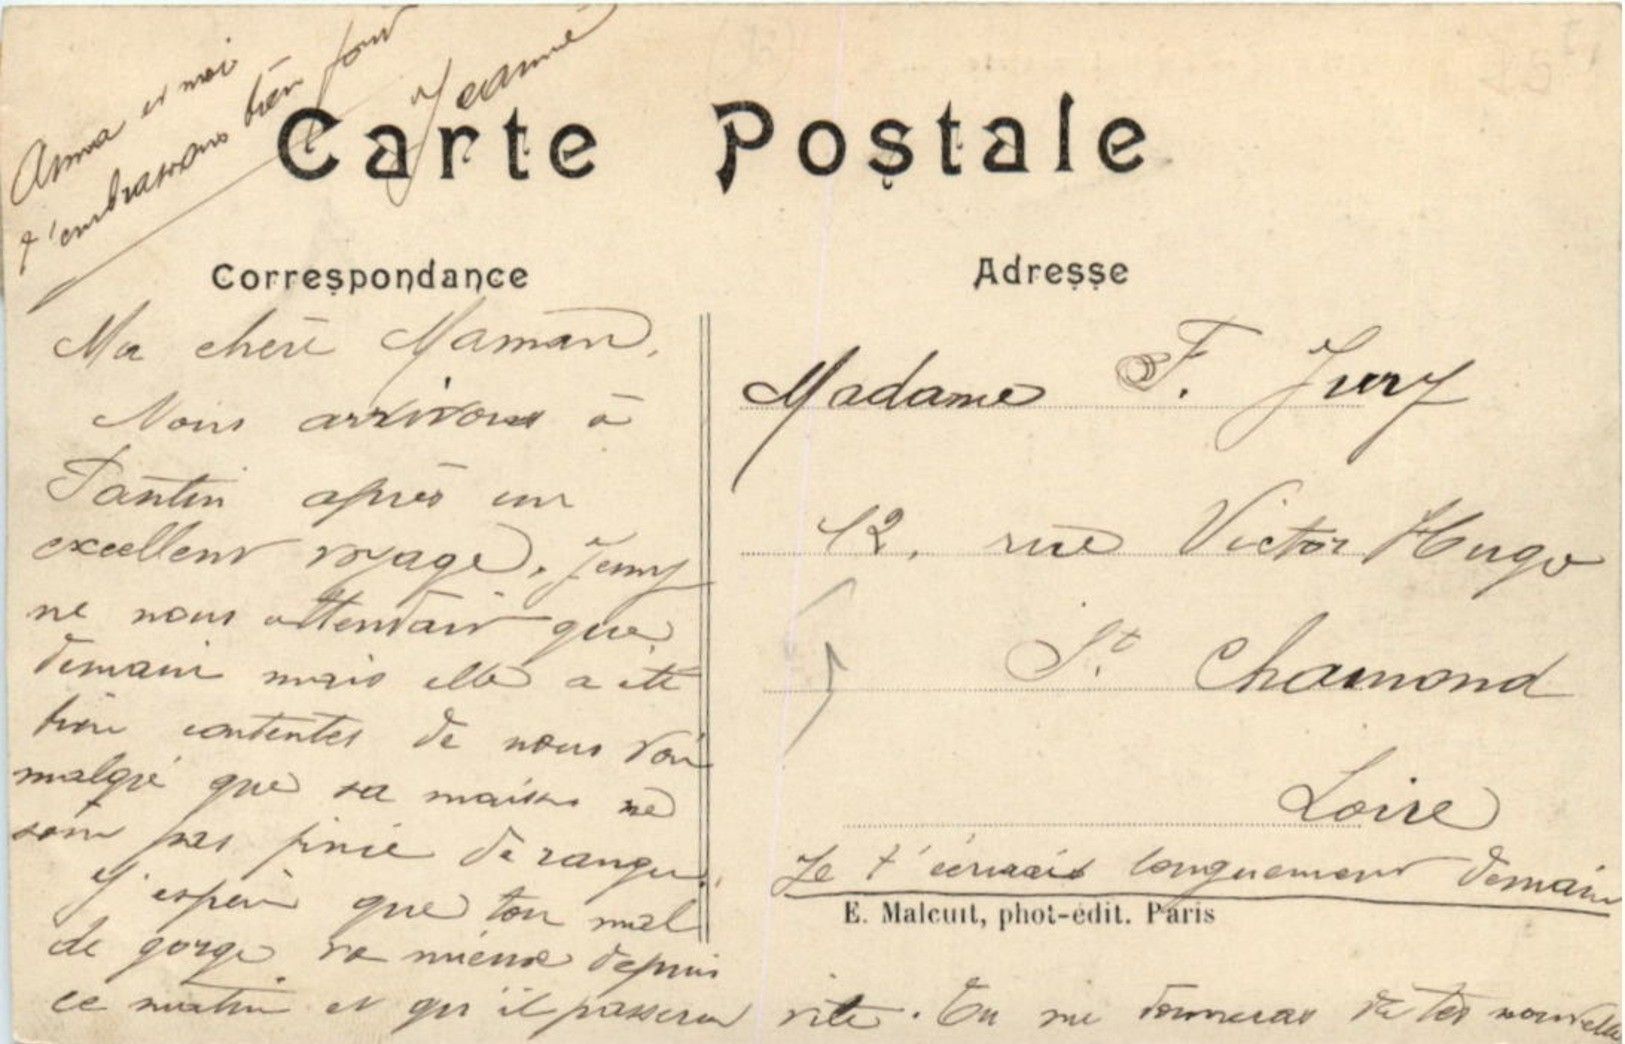 Anna et moi
t'embrassons bien fort
Jeanne
Carte Postale
Correspondance
Adresse
Ma chère Maman,
Nous arrivons à
Pantin après un
excellent voyage. Jenny
ne nous attendait que
demain mais elle a été
bien contentes de nous voir
malgré que sa maison ne
soit pas finie de ranger.
J'espère que ton mal
de gorge va mieux depuis
ce matin et qu'il passera vite. Tu me donneras de tes nouvelles
Madame F. Jury
12, rue Victor Hugo
St. Chamond
Loire
Je t'écrirais longuement demain
E. Malcuit, phot-édit. Paris